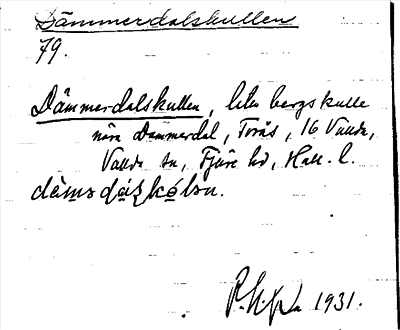 Dämmerdalskullen
79.
Dämmerdalskullen, liten bergskulle
nära Dammerdal, Torås, 16 Valda,
Valda sn, Fjäre hd, Hall. l.
1931.